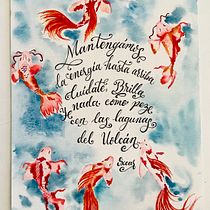 Mantengámos
la energía hasta arriba
cuídate, Brilla
y nada como pez
con las lagunas
del Volcán